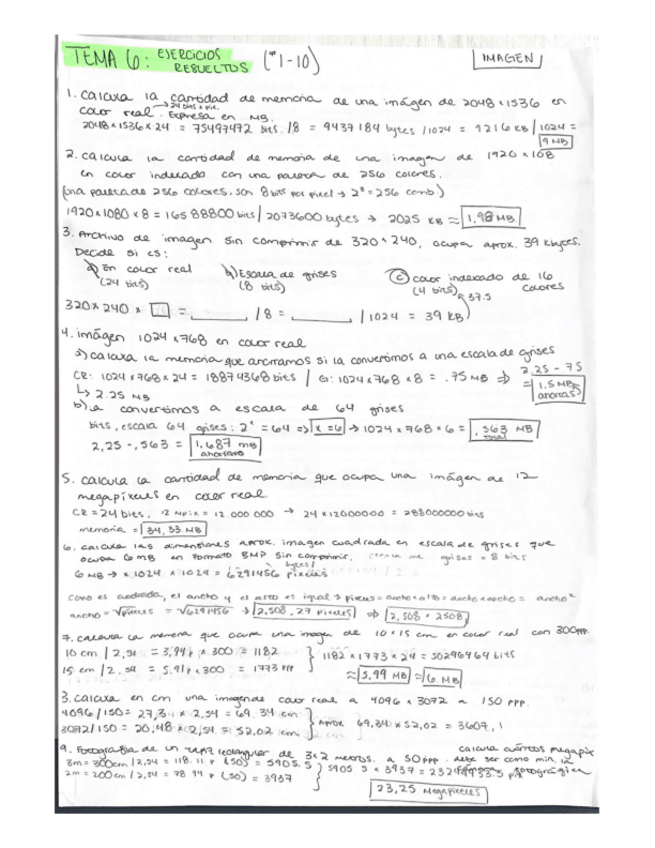 TEMA 6: EJERCICIOS RESUELTOS (*1-10)
IMAGEN
1. Calcula la cantidad de memoria de una imágen de 2048x1536 en
color real. Expresa en MB.
→ 24 bits x pix.
2048x1536x24 = 75497472 bits /8 = 9437184 bytes /1024 = 9216 KB /1024 =
9 MB
2. Calcula la cantidad de memoria de una imagen de 1920x108
en color indexado con una paleta de 256 colores.
(una paleta de 256 colores, son 8 bits por pixel → 2⁸ = 256 comb.)
1920x1080x8 = 16588800 bits / 2073600 bytes → 2025 KB ≈ 1,98 MB.
3. Archivo de imagen sin comprimir de 320x240, ocupa aprox. 39 Kbytes.
Decide si es:
a) En color real
b) Escala de grises
c) color indexado de 16 colores
(24 bits)
(8 bits)
(4 bits)
37.5
320x240 x = ______ /8 = ______ /1024 = 39 KB
4. imágen 1024x768 en color real
a) calcula la memoria que ahorramos si la convertimos a una escala de grises
CR: 1024x768x24 = 18874368 bits / G: 1024x768x8 = .75 MB ⇒ 2,25 - 75
↳ 2.25 MB
= 1,5 MB ahorras
b) convertimos a escala de 64 grises
bits, escala 64 grises: 2ˣ = 64 ⇒ x=6 → 1024x768x6 = .563 MB
total
2,25 - ,563 = 1,687 MB
ahorrado
5. Calcula la cantidad de memoria que ocupa una imágen de 12
megapíxeles en color real.
CR = 24 bits. 12 Mpix = 12 000 000 → 24 x 12000000 = 288000000 bits
memoria = 34,33 MB
6. Calcula las dimensiones aprox. imagen cuadrada en escala de grises que
ocupa 6 MB en formato BMP sin comprimir. grises = 8 bits
6 MB → x 1024 x 1024 = 6291456 bytes/ pixeles
Como es cuadrada, el ancho y el alto es igual → pixeles = ancho x alto = ancho x ancho = ancho²
ancho = √pixeles = √6291456 → 2,508,27 pixeles ⇒ 2,508 x 2508
7. Calcula la memoria que ocupa una imagen de 10x15 cm en color real con 300ppp.
10 cm / 2,54 = 3,94 x 300 = 1182
15 cm / 2,54 = 5,91 x 300 = 1773 ppp
1182 x 1773 x 24 = 50296464 bits
≈ 5,99 MB ≈ 6 MB
8. Calcula en cm una imagen de color real a 4096x3072 a 150 ppp.
4096/150 = 27,3 x 2,54 = 69,34 cm
3072/150 = 20,48 x 2,54 = 52,02 cm
Aprox 69,34 x 52,02 = 3607,1
9. Fotografía de un tapiz rectangular de 3x2 metros. a 50ppp. calcula cuántos megapix
debe ser como min. la
cámara fotográfica
3m = 300cm / 2,54 = 118.11 x (50) = 5905.5
2m = 200cm / 2,54 = 78.74 x (50) = 3937
23,25 Megapixeles